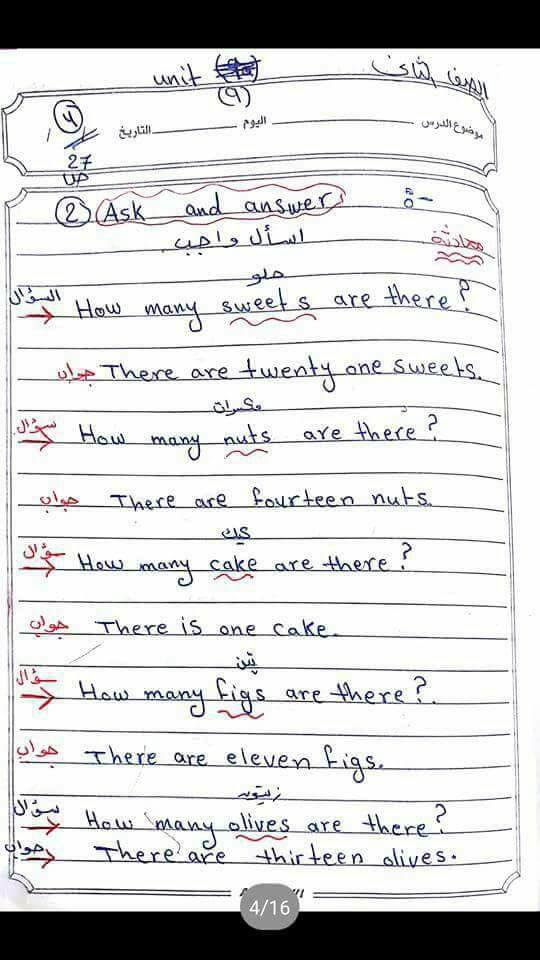 unit الصف الثاني
(٩)
موضوع الدرس اليوم التاريخ
27
ص
② Ask and answer
اسأل واجب محادثة
حلو
السؤال How many sweets are there?
جواب There are twenty one sweets.
مكسرات
سؤال How many nuts are there?
جواب There are fourteen nuts.
كيك
سؤال How many cake are there?
جواب There is one cake.
تين
سؤال How many figs are there?.
جواب There are eleven figs.
زيتون
سؤال How many olives are there?
جواب There are thirteen olives.
4/16